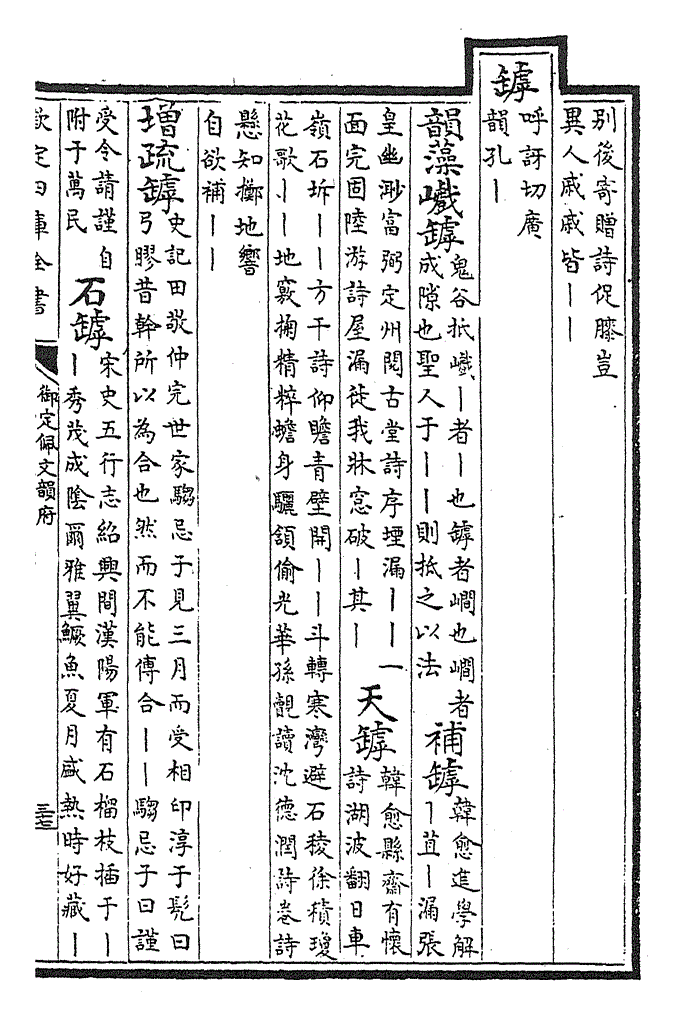 別後寄贈詩促膝豈
異人戚戚皆丨丨
罅
呼訝切廣
韻孔丨
韻藻巇罅
鬼谷抵巇丨者丨也罅者㵎也㵎者
成隙也聖人于丨丨則抵之以法
補罅
韓愈進學解
丨苴丨漏張
皇幽渺富弼定州閱古堂詩序堙漏丨丨一
面完固陸游詩屋漏徙我牀窓破丨其丨
天罅
韓愈縣齋有懷
詩湖波翻日車
嶺石坼丨丨方干詩仰瞻青壁開丨丨斗轉寒灣避石稜徐積瓊
花歌丨丨地竅掬精粹蟾身驪頷偷光華孫覿讀沈德潤詩卷詩
懸知擲地響
自欲補丨丨
增疏罅
史記田敬仲完世家騶忌子見三月而受相印淳于髡曰
弓膠昔幹所以為合也然而不能傅合丨丨騶忌子曰謹
受令請謹自
附于萬民
石罅
宋史五行志紹興間漢陽軍有石榴枝插于丨
丨秀茂成陰爾雅翼鱖魚夏月盛熱時好藏丨
欽定四庫全書
御定佩文韻府
三七